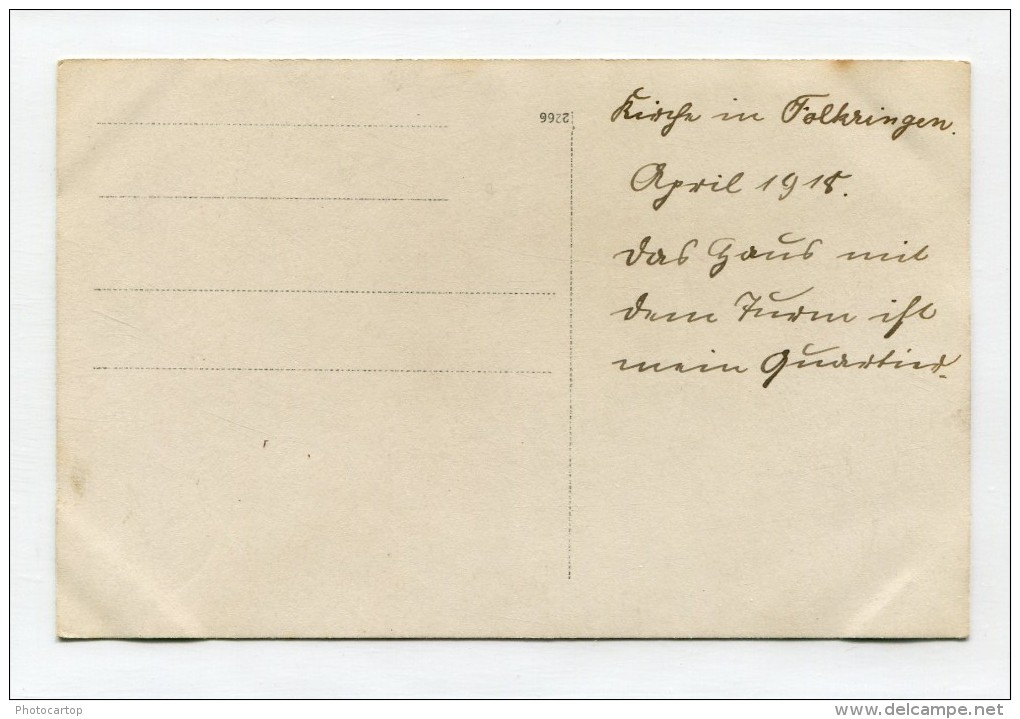 2266
Kirche in Folkringen.
April 1918.
Das Haus mit
dem Turm ist
mein Quartier.
Photocartop
www.delcampe.net